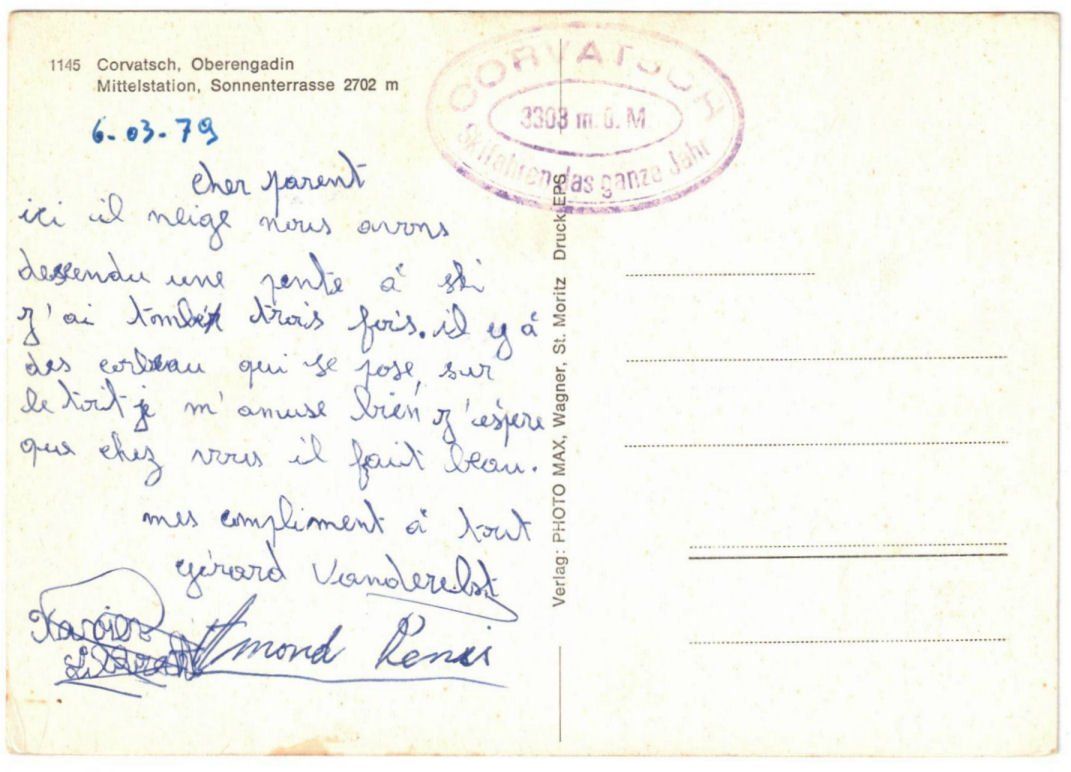 1145 Corvatsch, Oberengadin
Mittelstation, Sonnenterrasse 2702 m
CORVATSCH
3303 m.ü.M.
Skifahren das ganze Jahr
6-03-79
cher parent
ici il neige nous avons
dessendu une pente à ski
j'ai tomber trois fois. il y à
des corbeau qui se pose sur
le toit je m'amuse bien j'éspere
que chez vous il fait beau.
mes compliment à tout
Gérard Vanderelst
Xavier
Amond Renzi
Verlag: PHOTO MAX, Wagner, St. Moritz Druck EPS